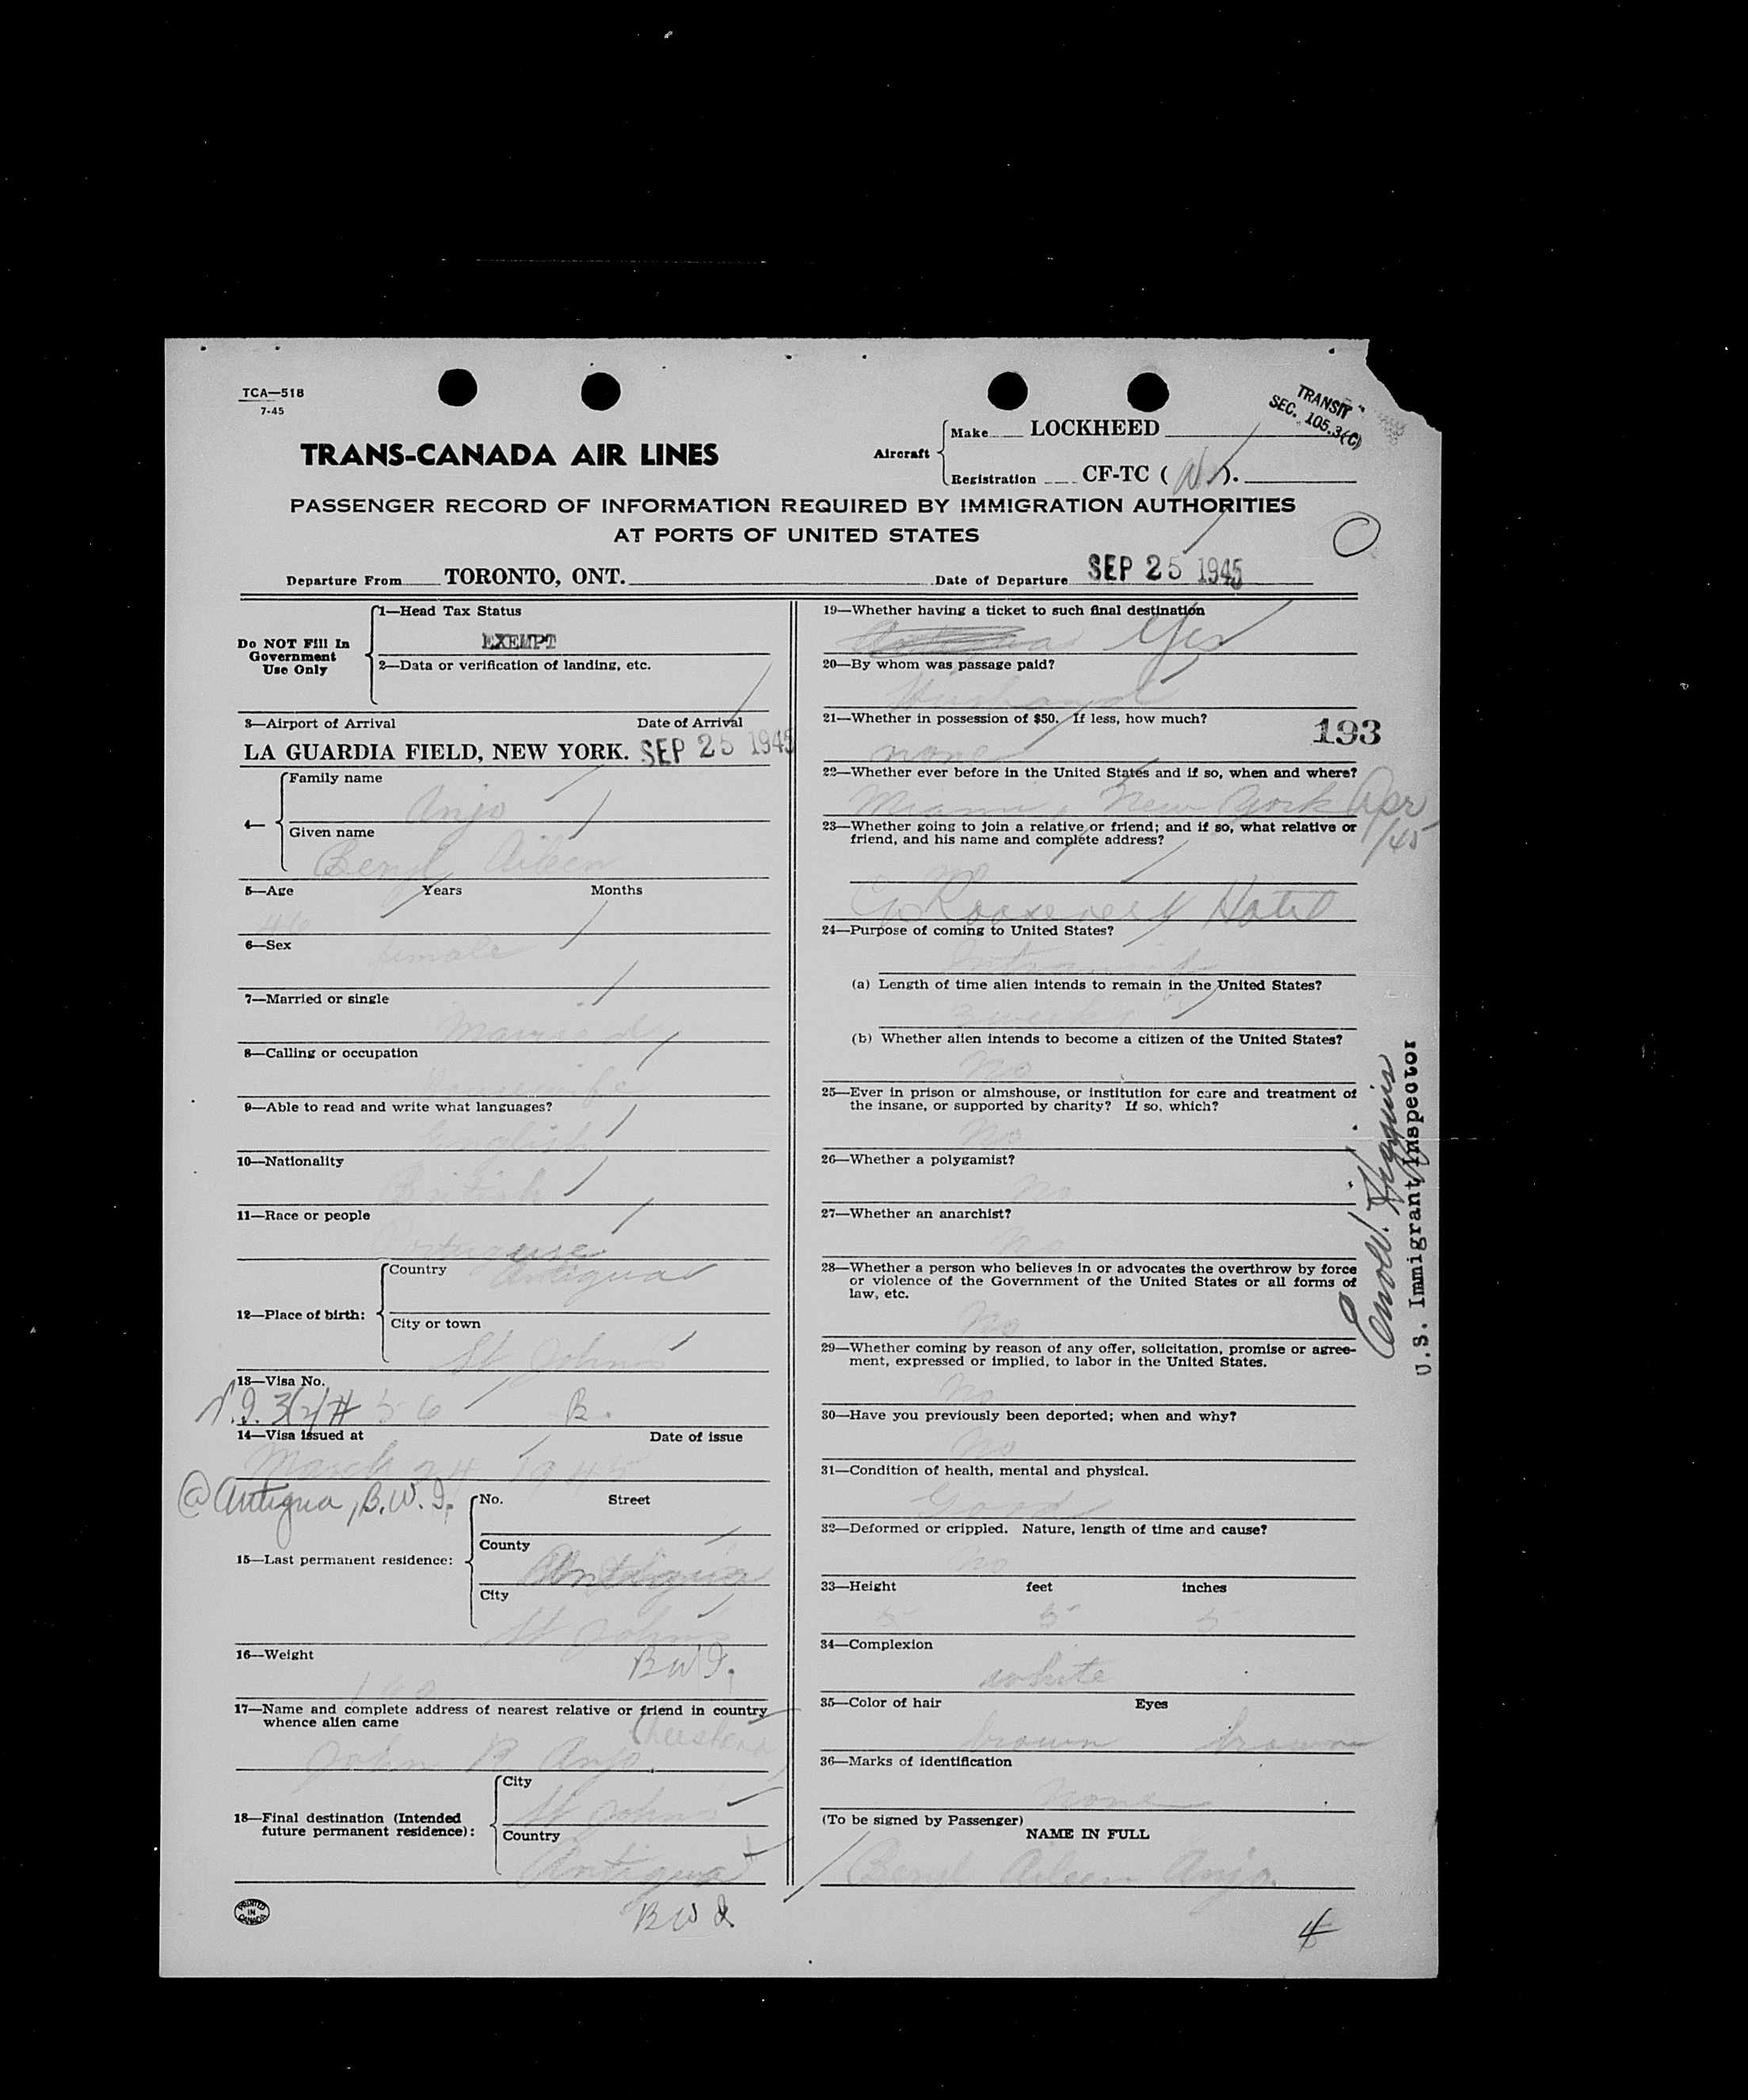 TCA—518
7-45
TRANSIT
SEC. 105.3(C)
TRANS-CANADA AIR LINES
Aircraft
Make LOCKHEED
Registration CF-TC ( ).
PASSENGER RECORD OF INFORMATION REQUIRED BY IMMIGRATION AUTHORITIES
AT PORTS OF UNITED STATES
Departure From TORONTO, ONT. Date of Departure SEP 25 1945
Do NOT Fill In
Government
Use Only
1—Head Tax Status
EXEMPT
2—Data or verification of landing, etc.
3—Airport of Arrival Date of Arrival
LA GUARDIA FIELD, NEW YORK. SEP 25 1945
4—
Family name
Anjo
Given name
Beryl Aileen
5—Age Years Months
46
6—Sex
female
7—Married or single
Married
8—Calling or occupation
Housewife
9—Able to read and write what languages?
English
10—Nationality
British
11—Race or people
Portuguese
12—Place of birth:
Country
Antigua
City or town
St Johns
13—Visa No.
3(2) # 56
14—Visa issued at Date of issue
March 24 1945
@ Antigua, B.W.I.
15—Last permanent residence:
No. Street
County
Antigua
City
St Johns
B W I.
16—Weight
17—Name and complete address of nearest relative or friend in country
whence alien came
(husband)
John R Anjo.
18—Final destination (Intended
future permanent residence):
City
St Johns
Country
Antigua
B W I
PRINTED
IN
CANADA
19—Whether having a ticket to such final destination
Yes
20—By whom was passage paid?
Husband
21—Whether in possession of $50. If less, how much?
193
none
22—Whether ever before in the United States and if so, when and where?
Miami, New York Apr
/45
23—Whether going to join a relative or friend; and if so, what relative or
friend, and his name and complete address?
No
c/o Roosevelt Hotel
24—Purpose of coming to United States?
Intransit
(a) Length of time alien intends to remain in the United States?
3 weeks
(b) Whether alien intends to become a citizen of the United States?
No
25—Ever in prison or almshouse, or institution for care and treatment of
the insane, or supported by charity? If so, which?
No
26—Whether a polygamist?
No
27—Whether an anarchist?
No
28—Whether a person who believes in or advocates the overthrow by force
or violence of the Government of the United States or all forms of
law, etc.
No
29—Whether coming by reason of any offer, solicitation, promise or agree-
ment, expressed or implied, to labor in the United States.
No
30—Have you previously been deported; when and why?
No
31—Condition of health, mental and physical.
Good
32—Deformed or crippled. Nature, length of time and cause?
No
33—Height feet inches
5 5 5
34—Complexion
white
35—Color of hair Eyes
brown brown
36—Marks of identification
None
(To be signed by Passenger)
NAME IN FULL
Beryl Aileen Anjo.
4
Higgins
U.S. Immigrant Inspector